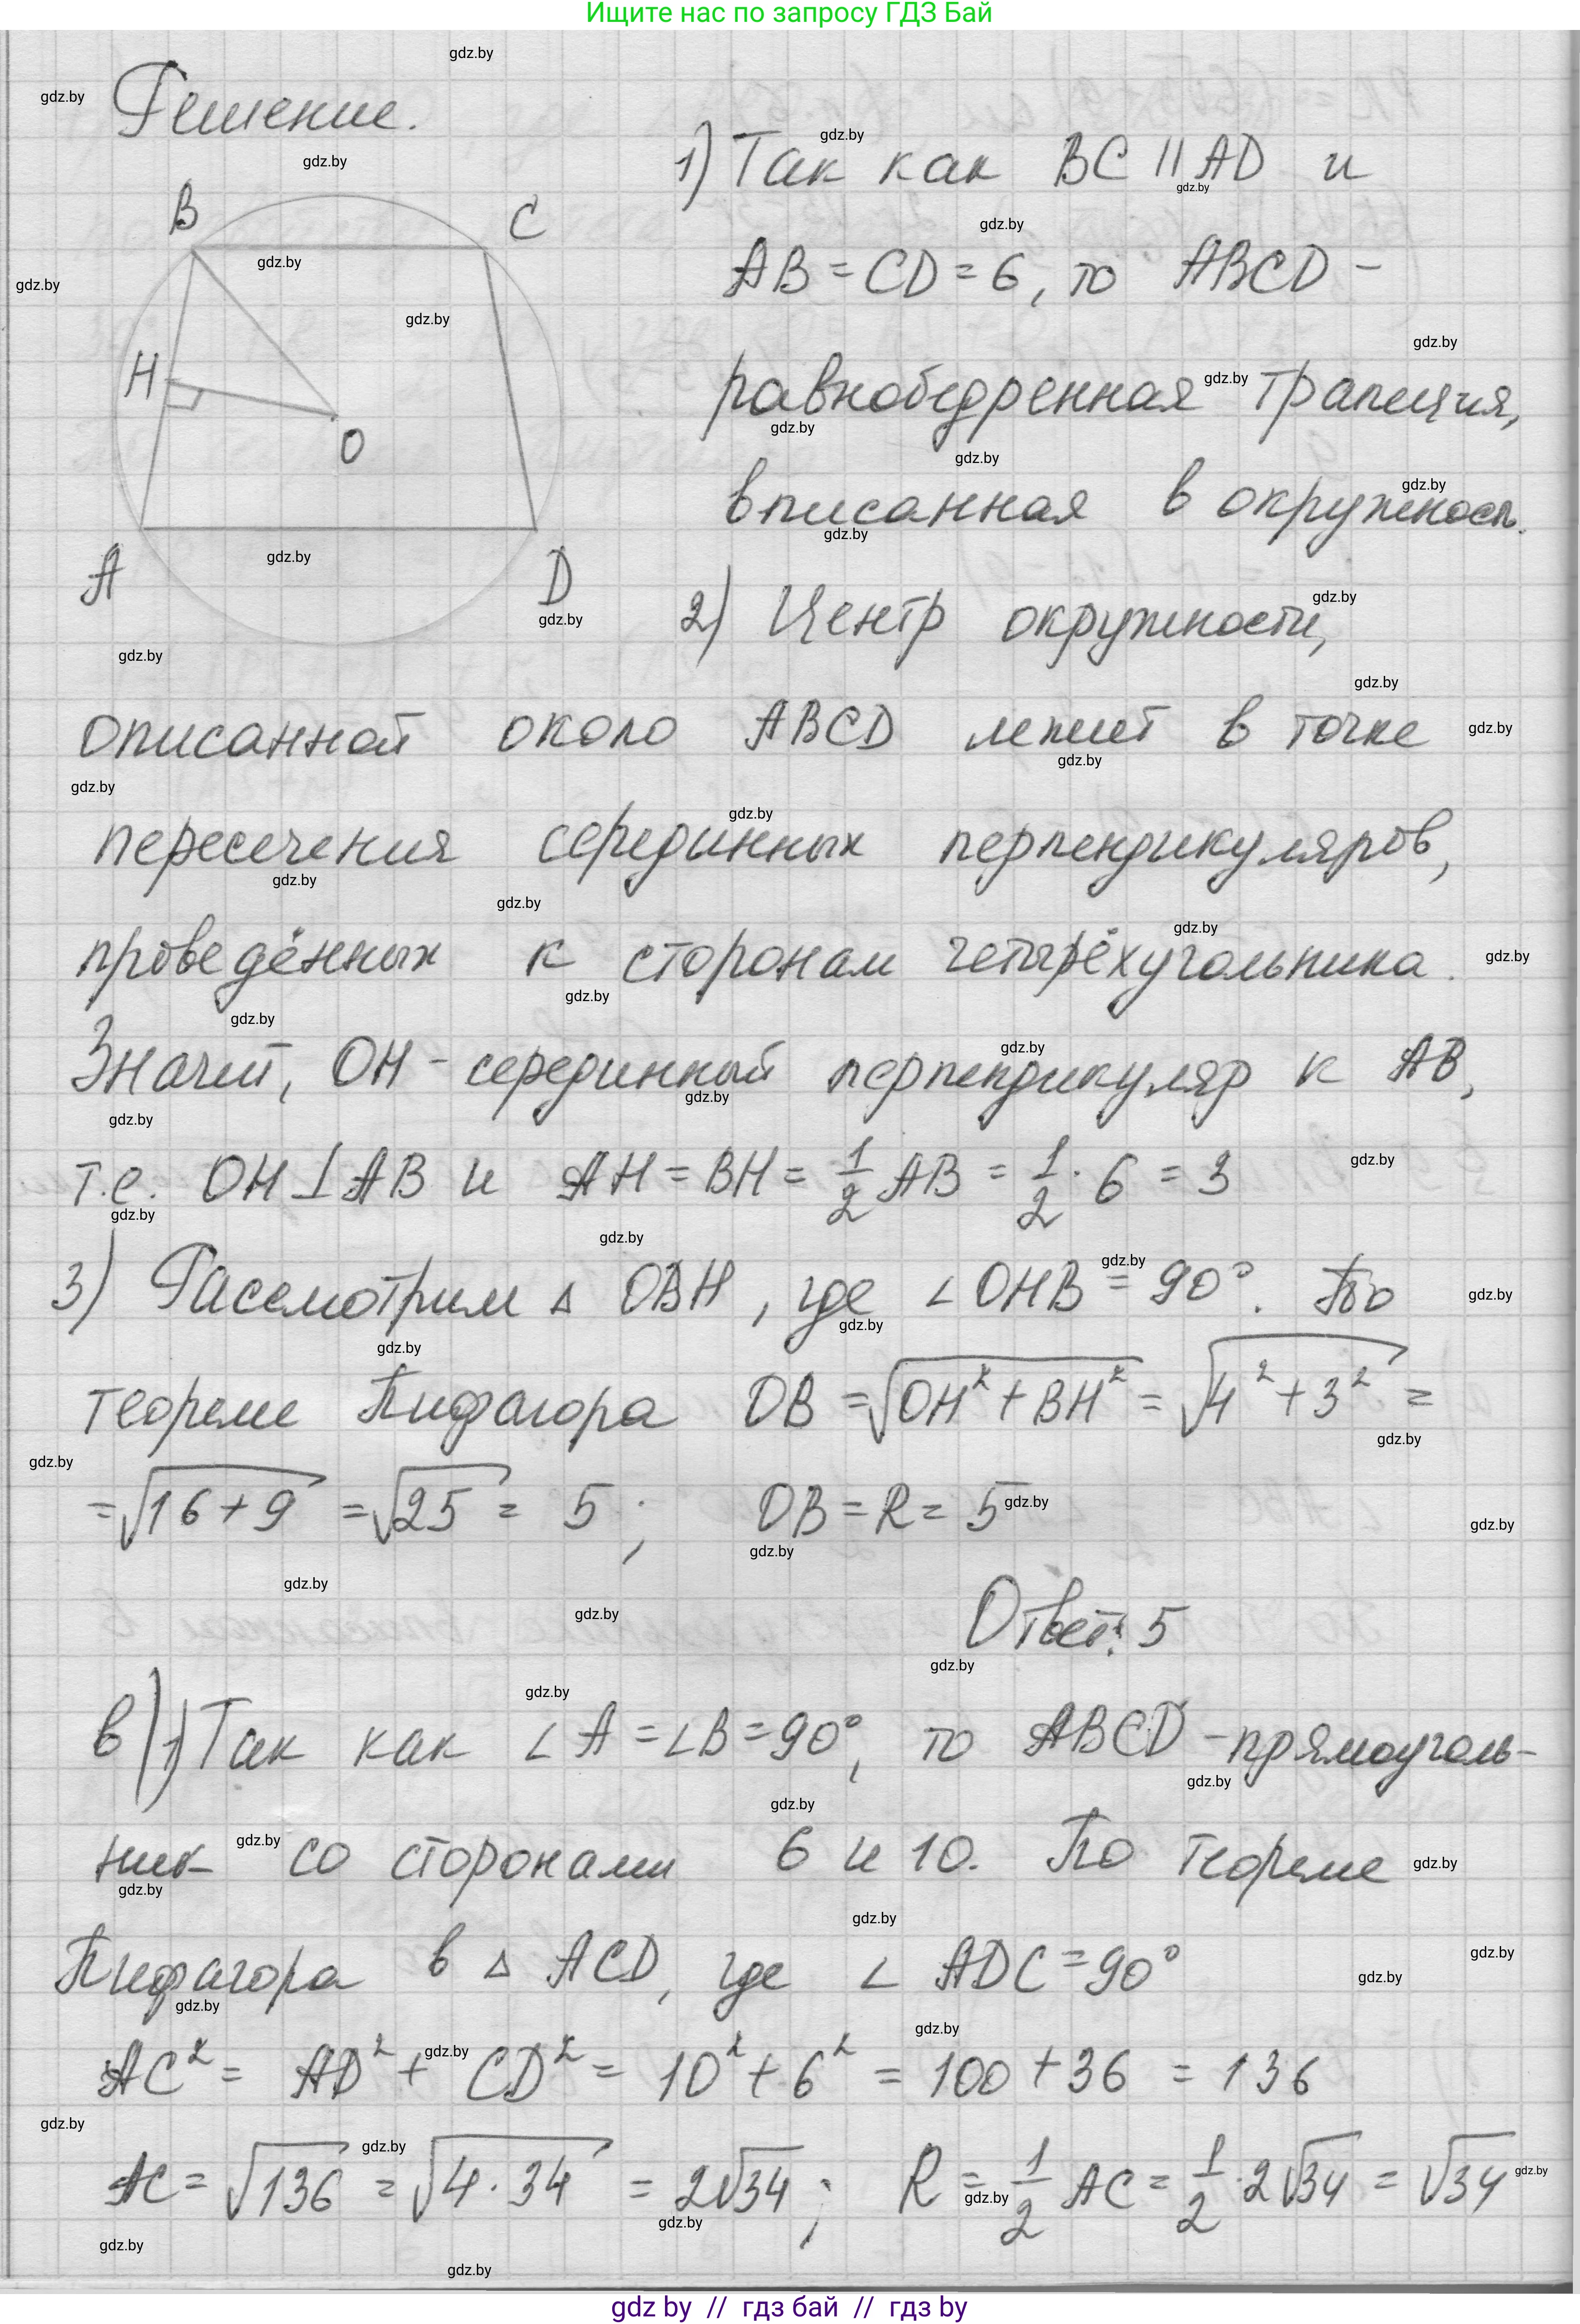 Ищите нас по запросу ГДЗ Бай
Решение.
B
C
H
O
A
D
1) Так как BC || AD и
AB = CD = 6, то ABCD –
равнобедренная трапеция,
вписанная в окружност.
2) Центр окружности,
описанной около ABCD лежит в точке
пересечения серединных перпендикуляров,
проведённых к сторонам четырёхугольника.
Значит, OH – серединный перпендикуляр к AB,
т.е. OH ⊥ AB и AH = BH = 1/2 AB = 1/2 · 6 = 3
3) Рассмотрим △ OBH, где ∠ OHB = 90°. По
теореме Пифагора OB = √(OH² + BH²) = √(4² + 3²) =
= √(16 + 9) = √25 = 5; OB = R = 5
Ответ: 5
в) 1) Так как ∠ A = ∠ B = 90°, то ABCD – прямоуголь-
ник со сторонами 6 и 10. По теореме
Пифагора в △ ACD, где ∠ ADC = 90°
AC² = AD² + CD² = 10² + 6² = 100 + 36 = 136
AC = √136 = √(4 · 34) = 2√34; R = 1/2 AC = 1/2 · 2√34 = √34
gdz by // гдз бай // гдз by